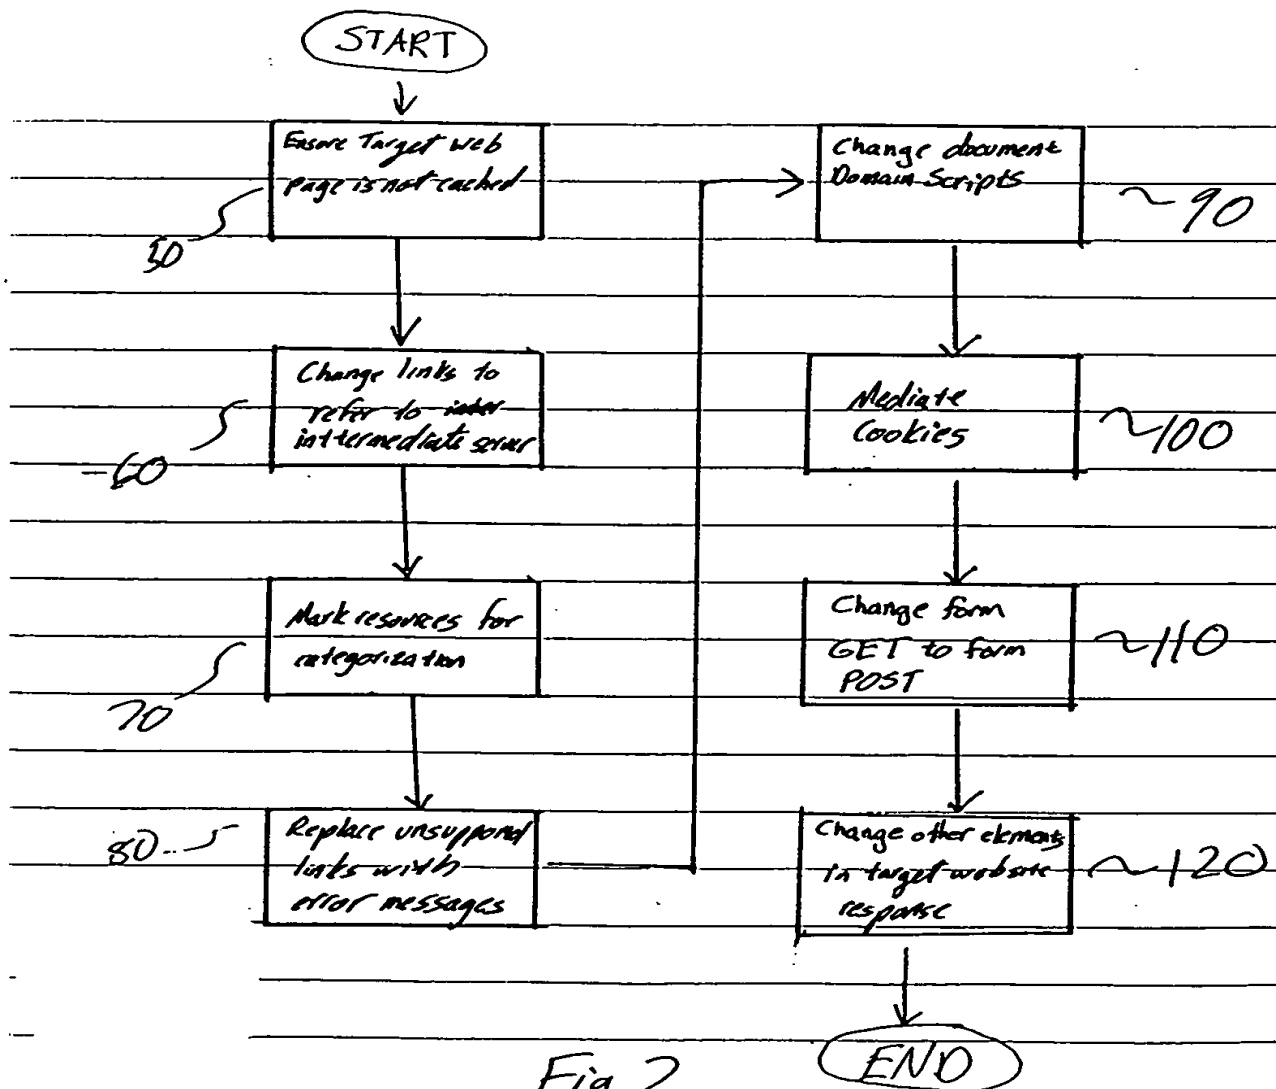 START
Ensure Target web
page is not cached
50
Change links to
refer to inter
inttermediate server
60
Mark resources for
categorization
70
Replace unsupported
links with
error messages
80
Change document
Domain Scripts
90
Mediate
Cookies
100
Change form
GET to form
POST
110
Change other elements
in target website
response
120
END
Fig 2